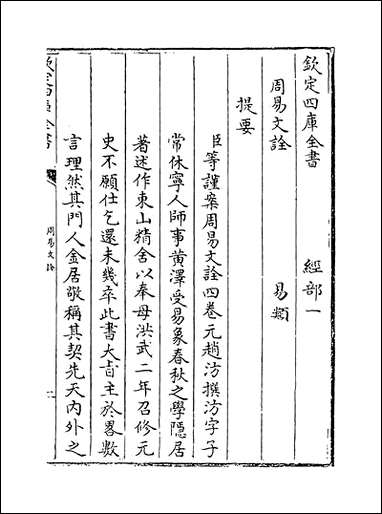 欽定四庫全書　經部一
周易文詮　易類
提要
臣等謹案周易文詮四卷元趙汸撰汸字子
常休寧人師事黃澤受易象春秋之學隱居
著述作東山精舍以奉母洪武二年召修元
史不願仕乞還未幾卒此書大旨主於畧數
言理然其門人金居敬稱其契先天內外之
欽定四庫全書
周易文詮